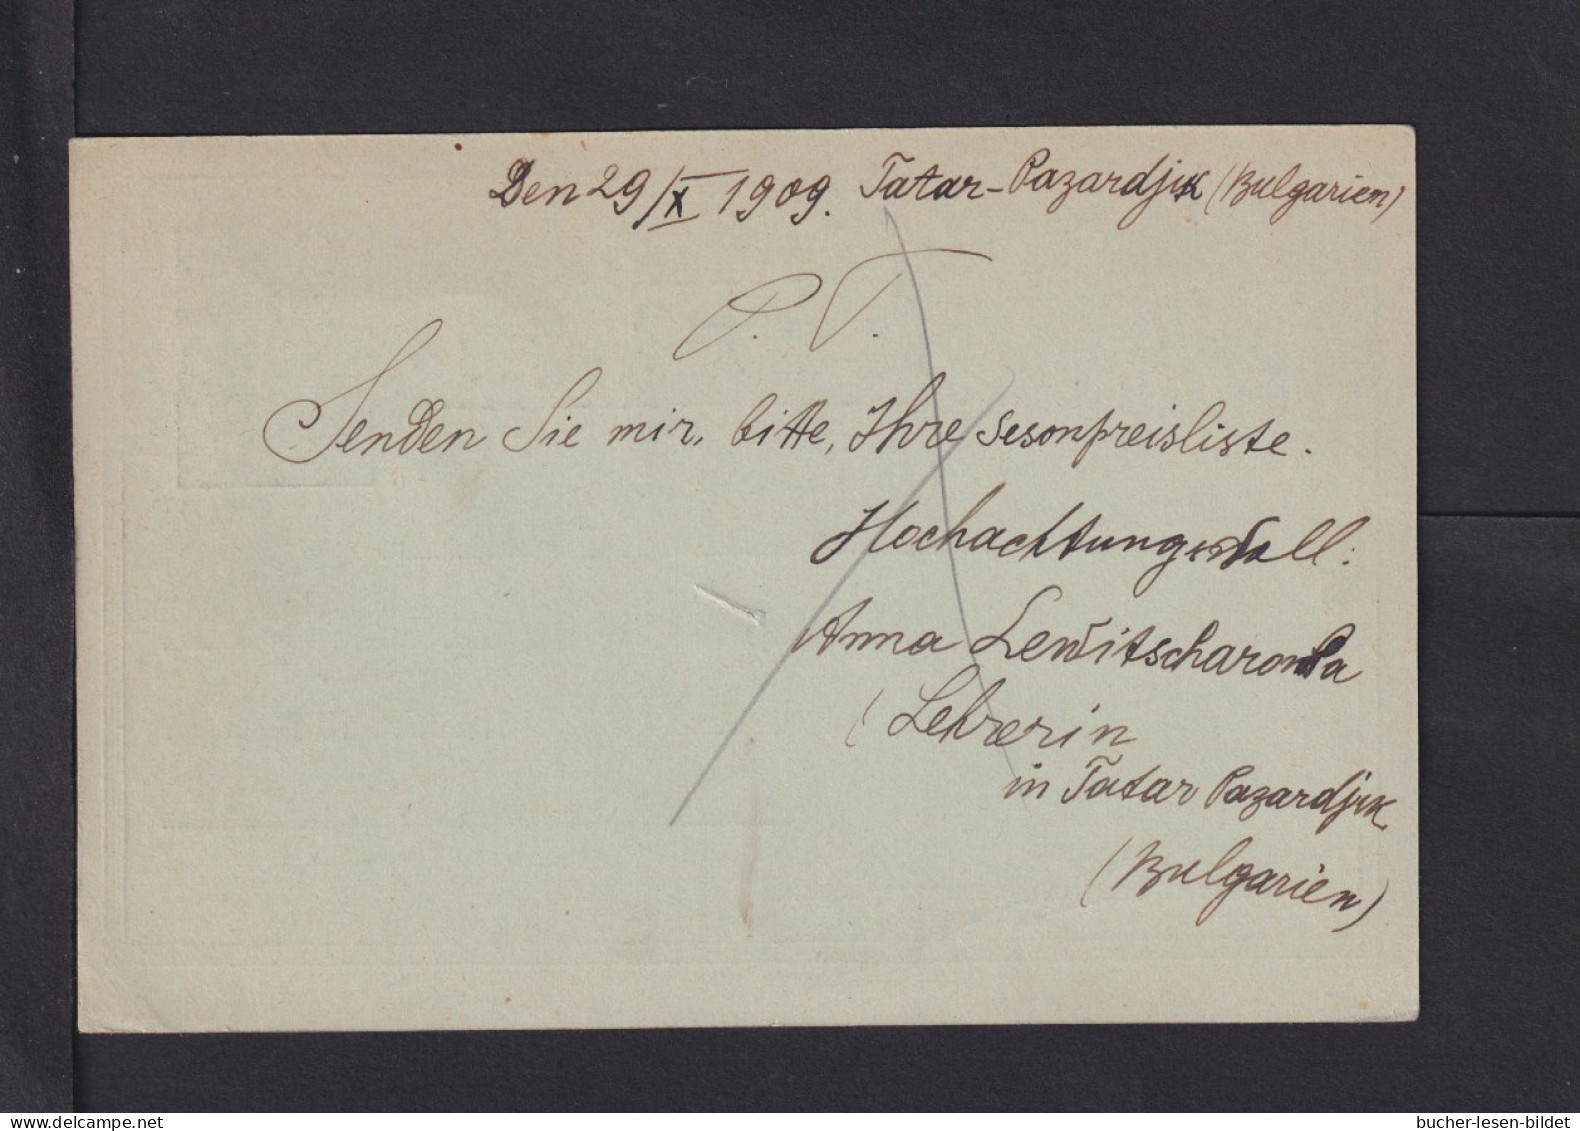 Den 29/X 1909. Tatar-Pazardjik (Bulgarien)
P. T.
Senden Sie mir, bitte, Ihre Sesonpreisliste.
Hochachtungsvoll:
Anna Lewitscharowa
(Lehrerin
in Tatar Pazardjik
(Bulgarien)
bucher-lesen-bildet